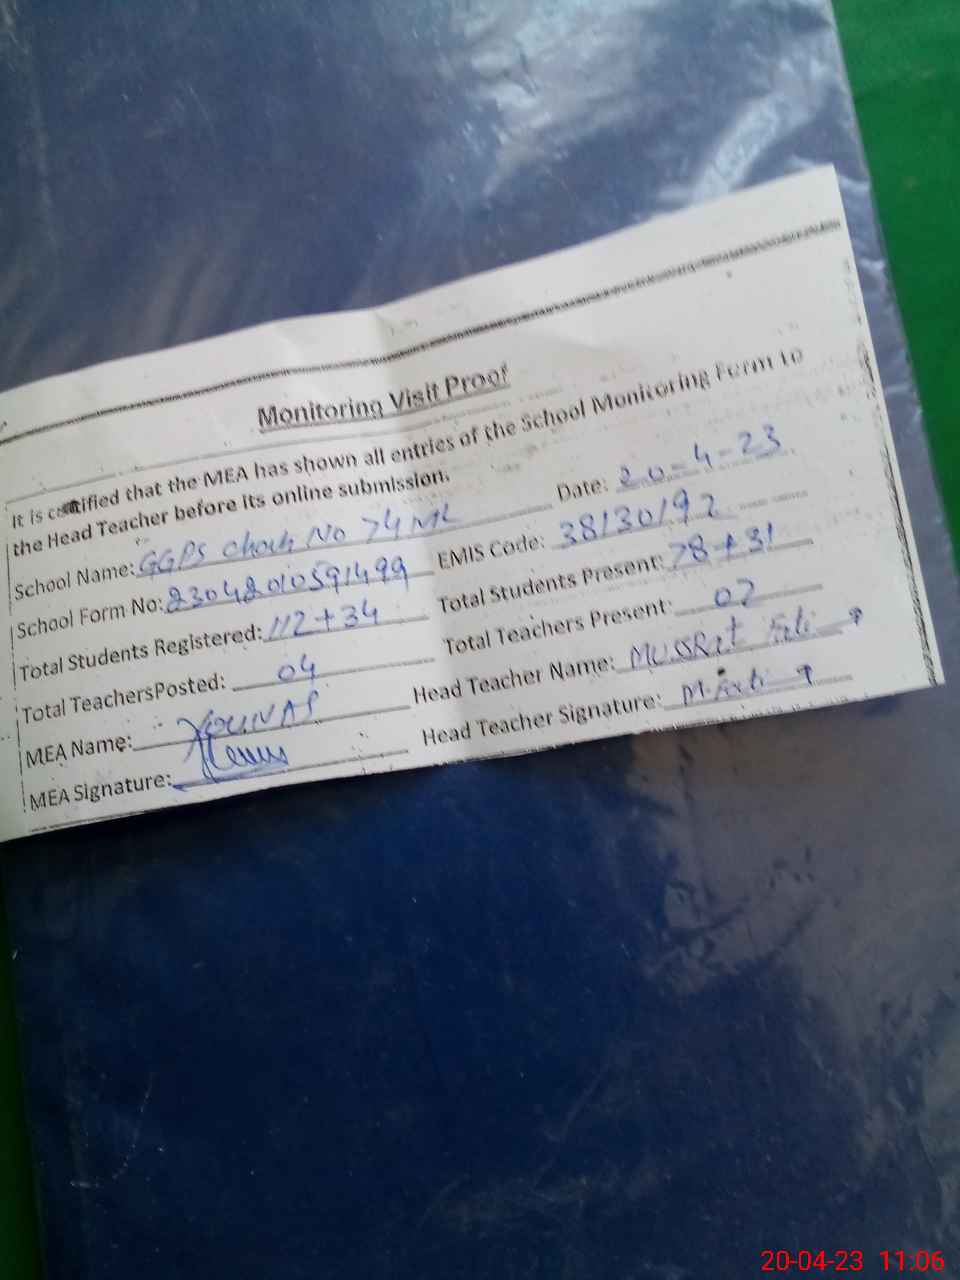 Monitoring Visit Proof
It is certified that the MEA has shown all entries of the School Monitoring Form to
the Head Teacher before its online submission. Date: 20-4-23
School Name: GGPS Chak No 74 ML EMIS Code: 38130192
School Form No: 23042010591499 Total Students Present: 78+31
Total Students Registered: 112+34 Total Teachers Present: 02
Total TeachersPosted: 04 Head Teacher Name: MUSSRat
MEA Name: YOUNAS Head Teacher Signature:
MEA Signature:
20-04-23 11:06